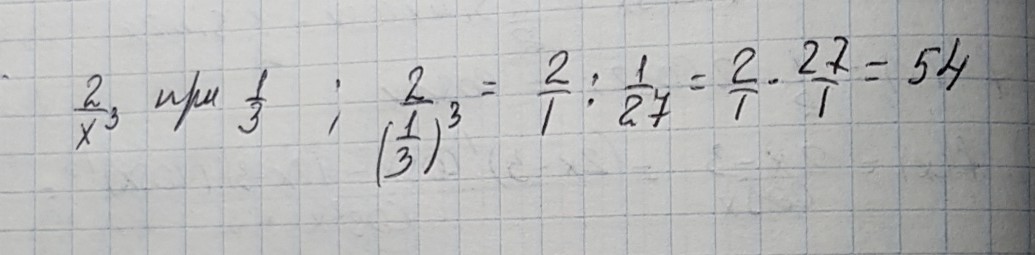 2/x³ при 1/3 ; 2/(1/3)³ = 2/1 : 1/27 = 2/1 · 27/1 = 54